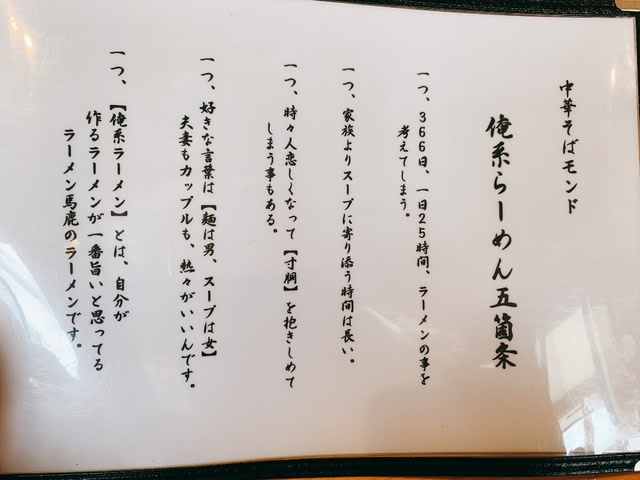 中華そばモンド
俺系らーめん五箇条
一つ、366日、一日25時間、ラーメンの事を
考えてしまう。
一つ、家族よりスープに寄り添う時間は長い。
一つ、時々人恋しくなって【寸胴】を抱きしめて
しまう事もある。
一つ、好きな言葉は【麺は男、スープは女】
夫妻もカップルも、熱々がいいんです。
一つ、【俺系ラーメン】とは、自分が
作るラーメンが一番旨いと思ってる
ラーメン馬鹿のラーメンです。